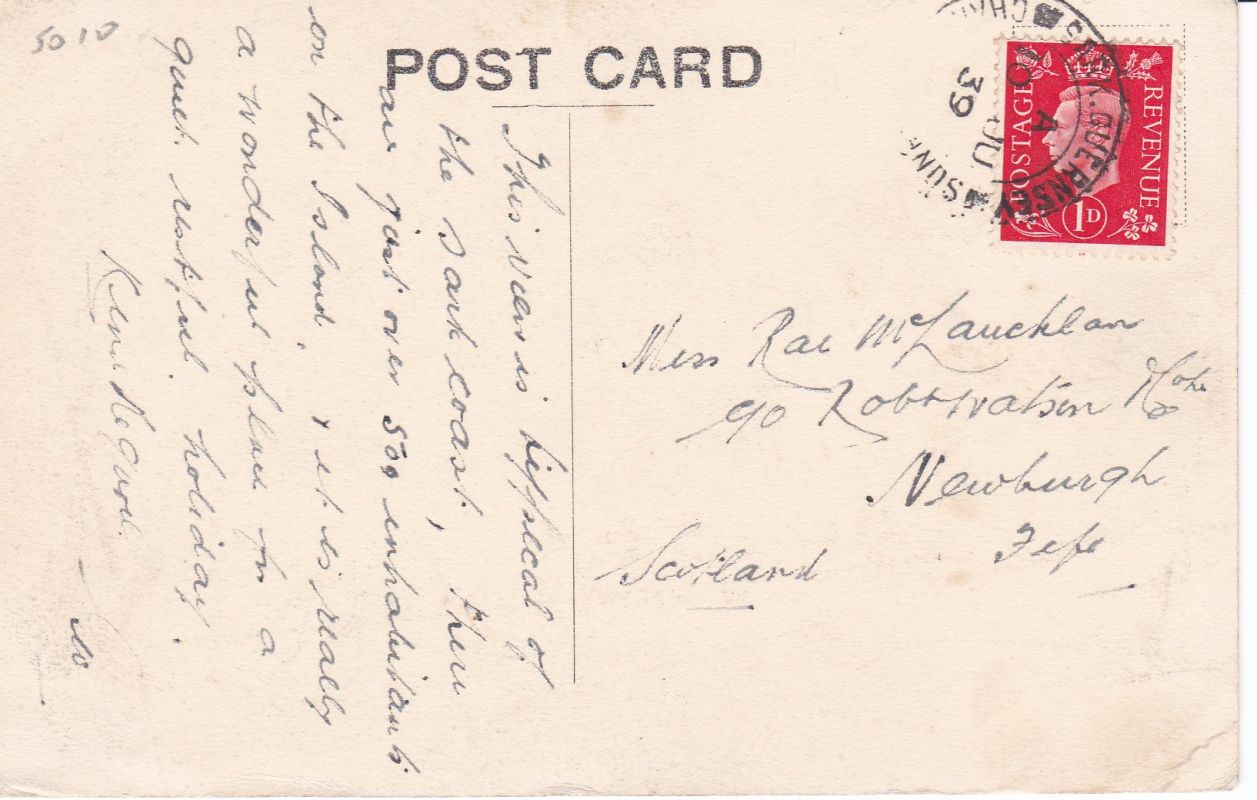 5010
POST CARD
This view is typical of
the Sark coast, there
are just over 500 inhabitants
on the Island, & it is really
a wonderful place for a
quiet restful holiday.
Kind Regards.
Miss Rae McLauchlan
90 Robt Watson
Newburgh
Fife
Scotland
POSTAGE REVENUE
1D
GUERNSEY
A
39